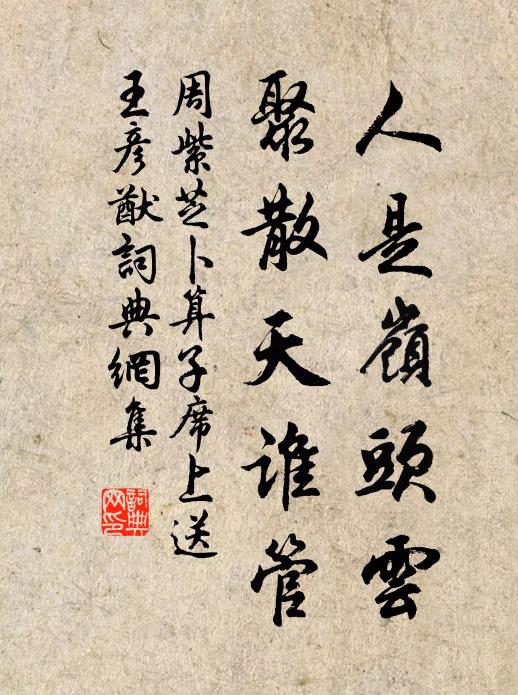 人是嶺頭雲
聚散天誰管
周紫芝卜算子席上送
王彦猷詞典網集
詞典网印